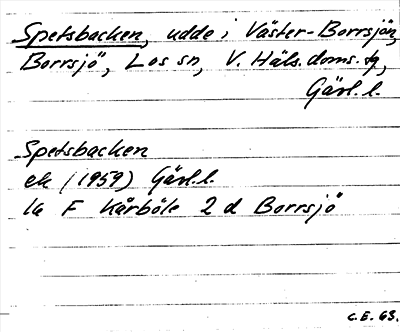 Spetsbacken, udde i Väster-Borrsjön,
Borrsjö, Los sn, V. Häls. doms. tg,
Gävl. l.
Spetsbacken
ek (1959) Gävl. l.
la F Kårböle 2 d Borrsjö
C.E. 63.